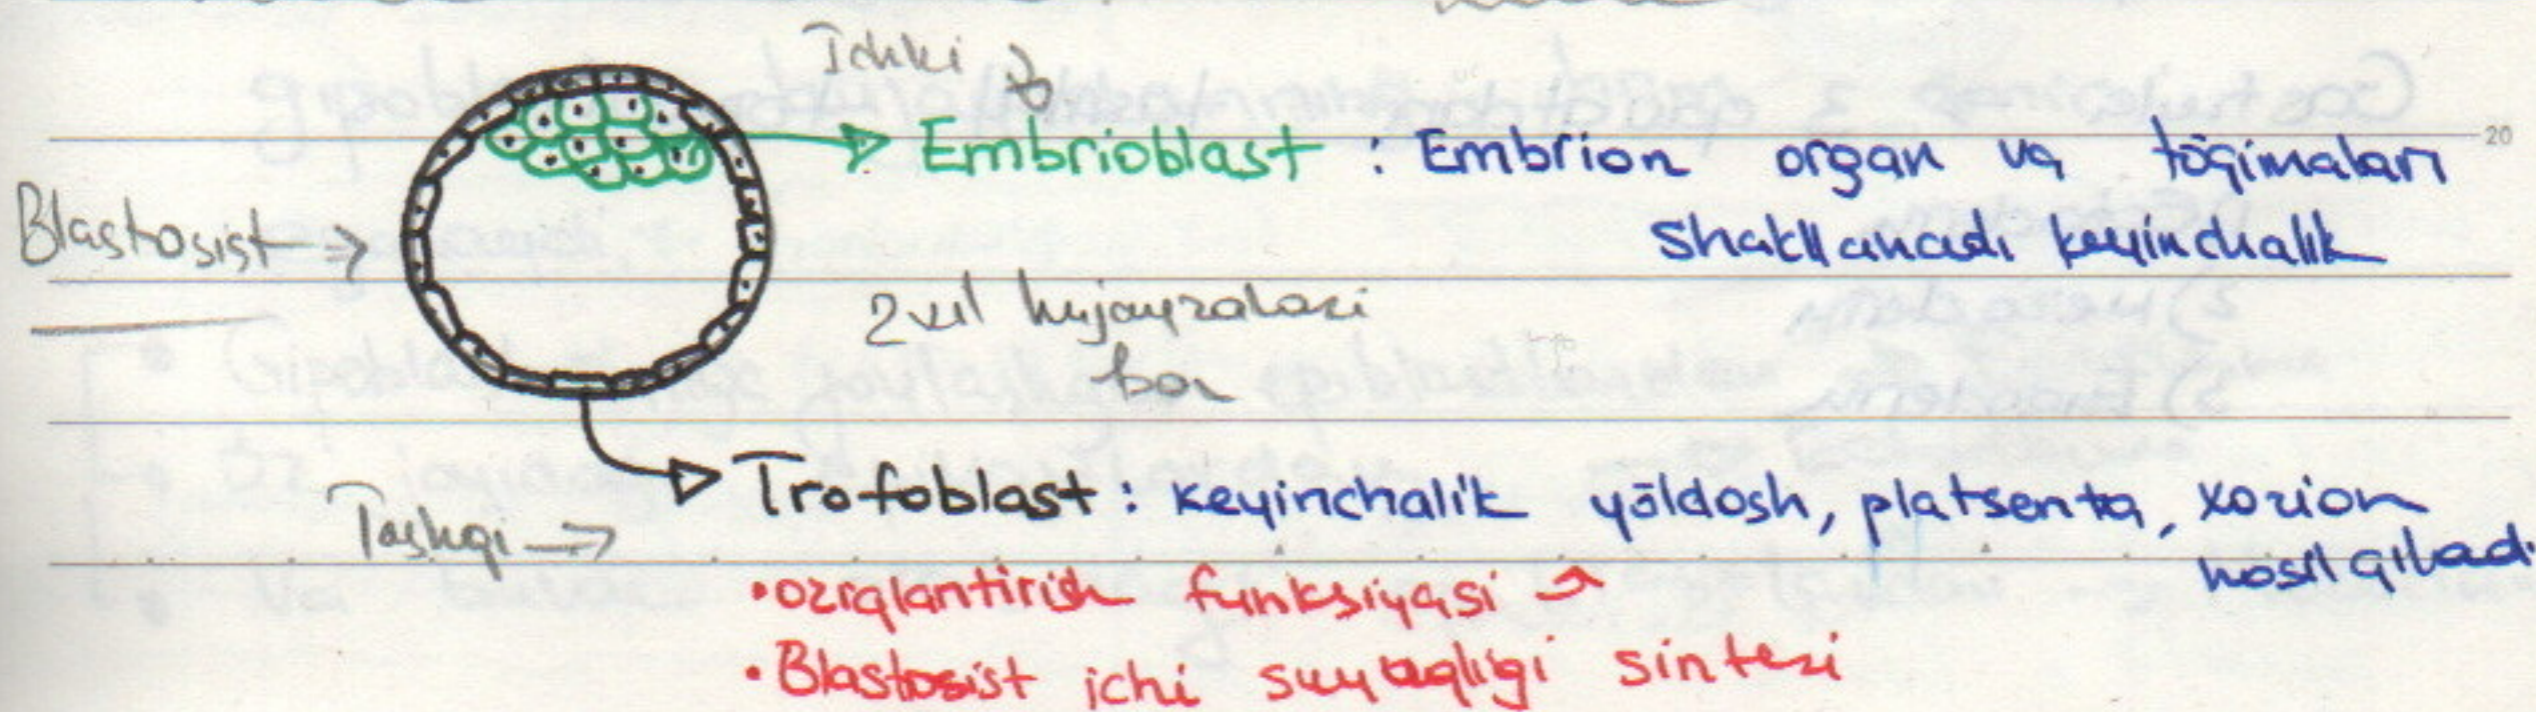 Ichki
Embrioblast : Embrion organ va tõqimalari
shakllanadi keyinchalik
20
Blastosist →
2 xil hujayralari
bor
Trofoblast : keyinchalik yõldosh, platsenta, xorion
hosil qiladi
Tashqi →
• oziqlantirish funksiyasi
• Blastosist ichi suyuqligi sintezi